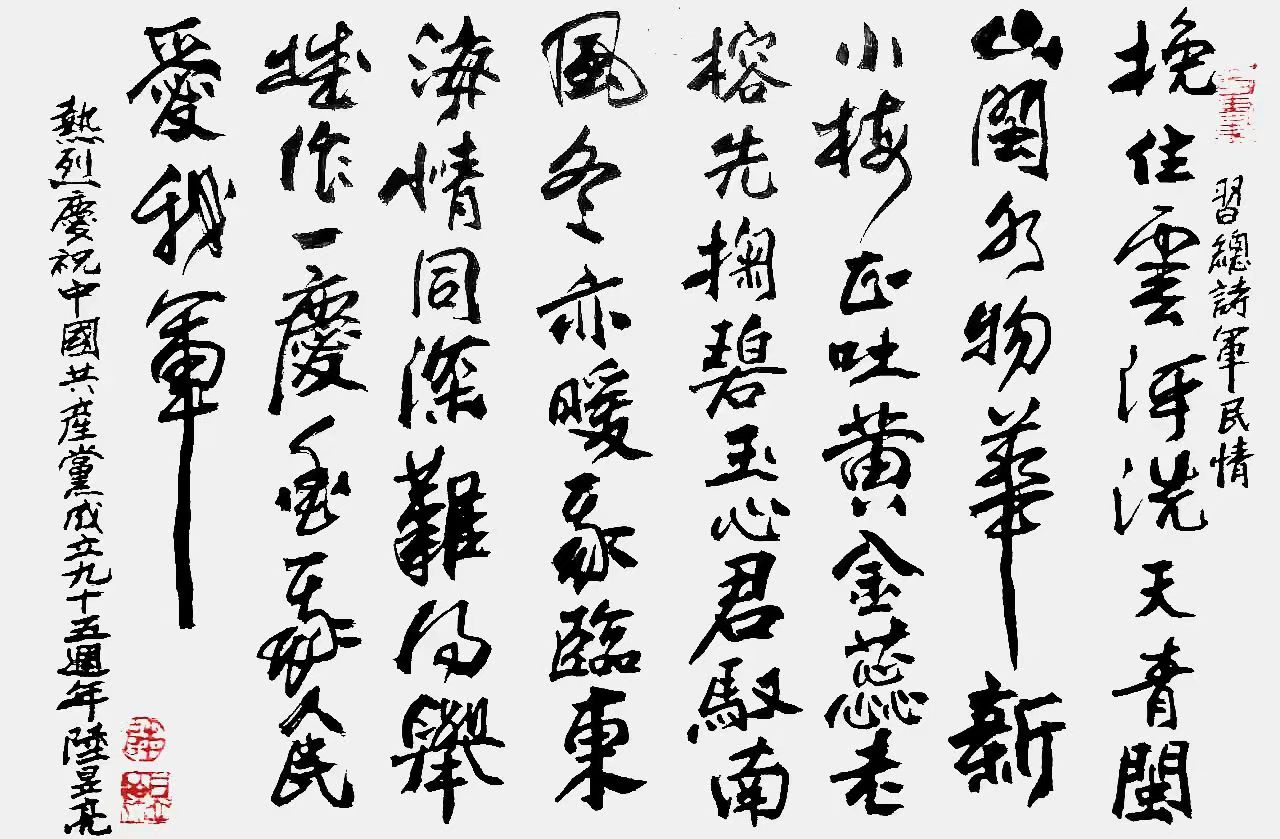 習總詩軍民情
挽住雲河洗天青閩
山閩水物華新
小梅正吐黄金蕊老
榕先掬碧玉心君馭南
風冬亦暖我臨東
海情同深難得舉
城作一慶愛我人民
愛我軍
熱烈慶祝中國共產黨成立九十五週年陸昱亮